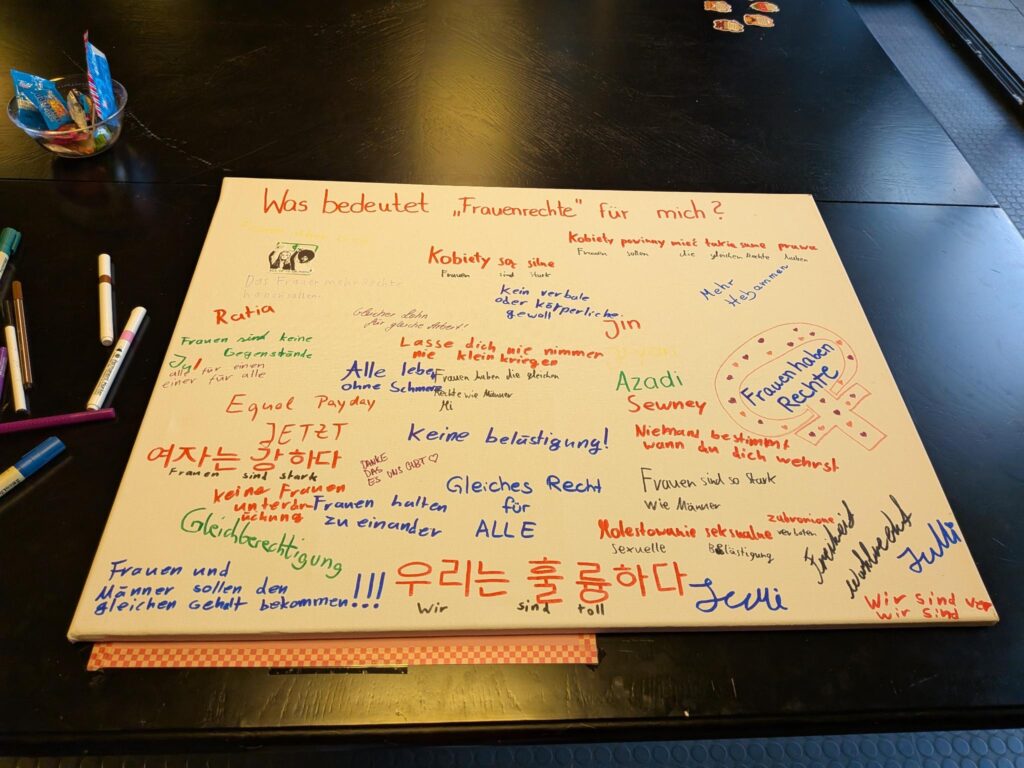 Was bedeutet „Frauenrechte" für mich?
Kobiety powinny mieć takie same prawa
Frauen sollen die gleichen Rechte haben
Kobiety są silne
Frauen sind stark
Das Frauen mehr Rechte
haben sollen.
Kein verbale
oder körperliche
gewalt
Mehr
Hebammen
Ratia
Gleicher Lohn
für gleiche Arbeit!
Jin
Jiyan
Azadi
Frauen sind keine
Gegenstände
alle für einen
einer für alle
Lasse dich nie nimmer
nie klein kriegen
Alle leben
ohne Schmerz
Frauen haben die gleichen
Rechte wie Männer
Frauen haben
Rechte
Equal Payday
JETZT
Sewney
Keine belästigung!
Niemand bestimmt
wann du dich wehrst
여자는 강하다
Frauen sind stark
DANKE
DAS
ES UNS GIBT ♡
Frauen sind so stark
wie Männer
keine Frauen
unterdr
ückung
Frauen halten
zu einander
Gleiches Recht
für
ALLE
Gleichberechtigung
Molestowanie seksualne zabronione
Sexuelle Belästigung verboten
Freiheid
Wahlrecht
Frauen und
Männer sollen den
gleichen Gehalt bekommen!!!
우리는 훌륭하다
Wir sind toll
Wir sind
wir sind